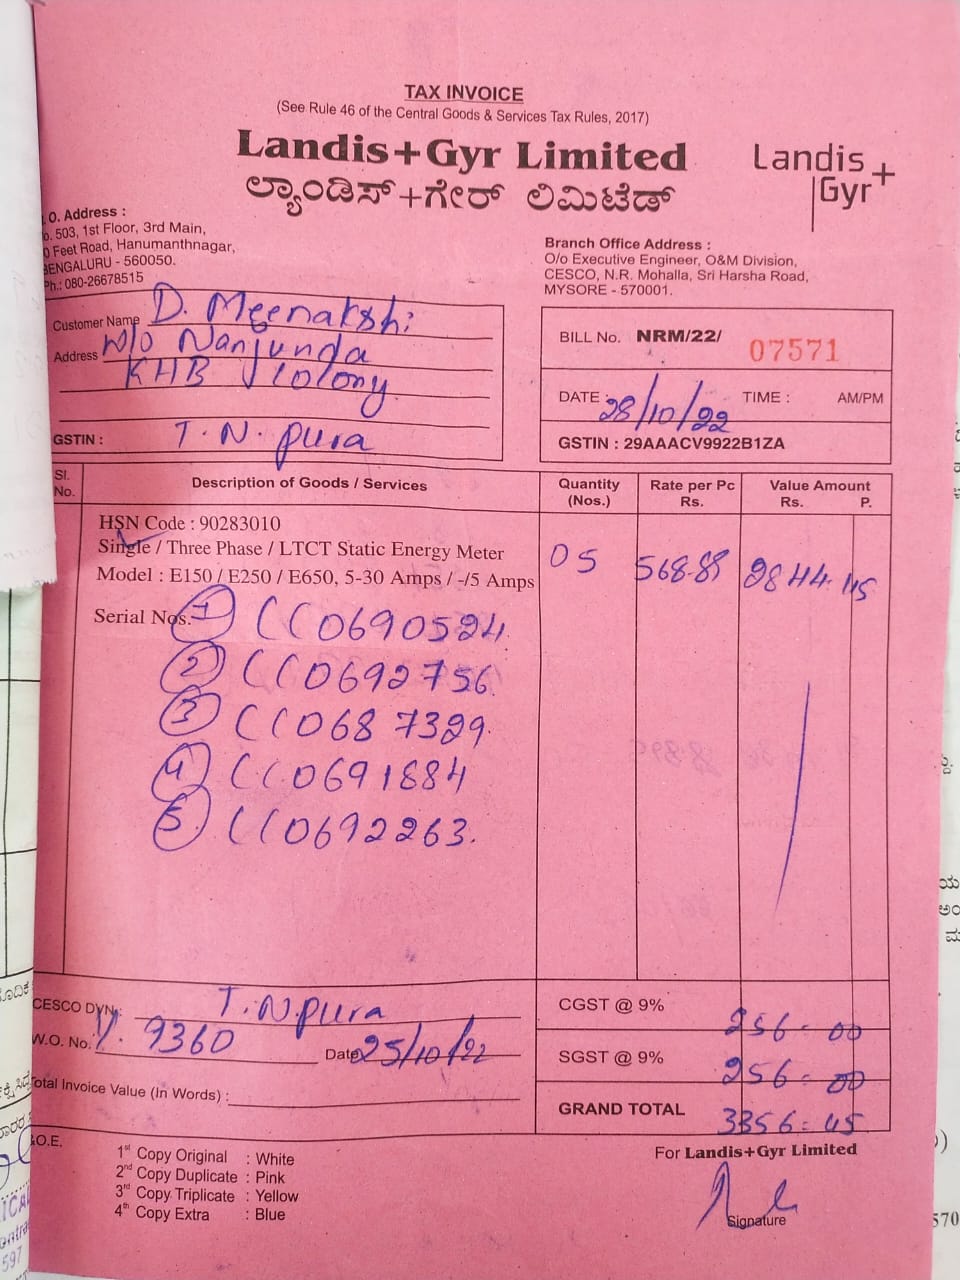 TAX INVOICE
(See Rule 46 of the Central Goods & Services Tax Rules, 2017)
Landis+Gyr Limited
ಲ್ಯಾಂಡಿಸ್+ಗೇರ್ ಲಿಮಿಟೆಡ್
Landis+
Gyr
.O. Address :
o. 503, 1st Floor, 3rd Main,
0 Feet Road, Hanumanthnagar,
BENGALURU - 560050.
Ph.: 080-26678515
Branch Office Address :
O/o Executive Engineer, O&M Division,
CESCO, N.R. Mohalla, Sri Harsha Road,
MYSORE - 570001.
Customer Name D. Meenakshi
Address w/o Nanjunda
KHB Colony
GSTIN : T.N.pura
BILL No. NRM/22/ 07571
DATE : 28/10/22 TIME : AM/PM
GSTIN : 29AAACV9922B1ZA
Sl. No. Description of Goods / Services Quantity (Nos.) Rate per Pc Rs. Value Amount Rs. P.
HSN Code : 90283010
Single / Three Phase / LTCT Static Energy Meter 05 568.89 2844.45
Model : E150 / E250 / E650, 5-30 Amps / -/5 Amps
Serial Nos. 1 CC0690524
2 CC0692756
3 CC0687329
4 CC0691884
5 CC0692263.
CESCO DVN.: T.N.pura
W.O. No. 9360 Date 25/10/22
Total Invoice Value (In Words) :
CGST @ 9% 256=00
SGST @ 9% 256=00
GRAND TOTAL 3356=45
.O.E.
1st Copy Original : White
2nd Copy Duplicate : Pink
3rd Copy Triplicate : Yellow
4th Copy Extra : Blue
For Landis+Gyr Limited
Signature